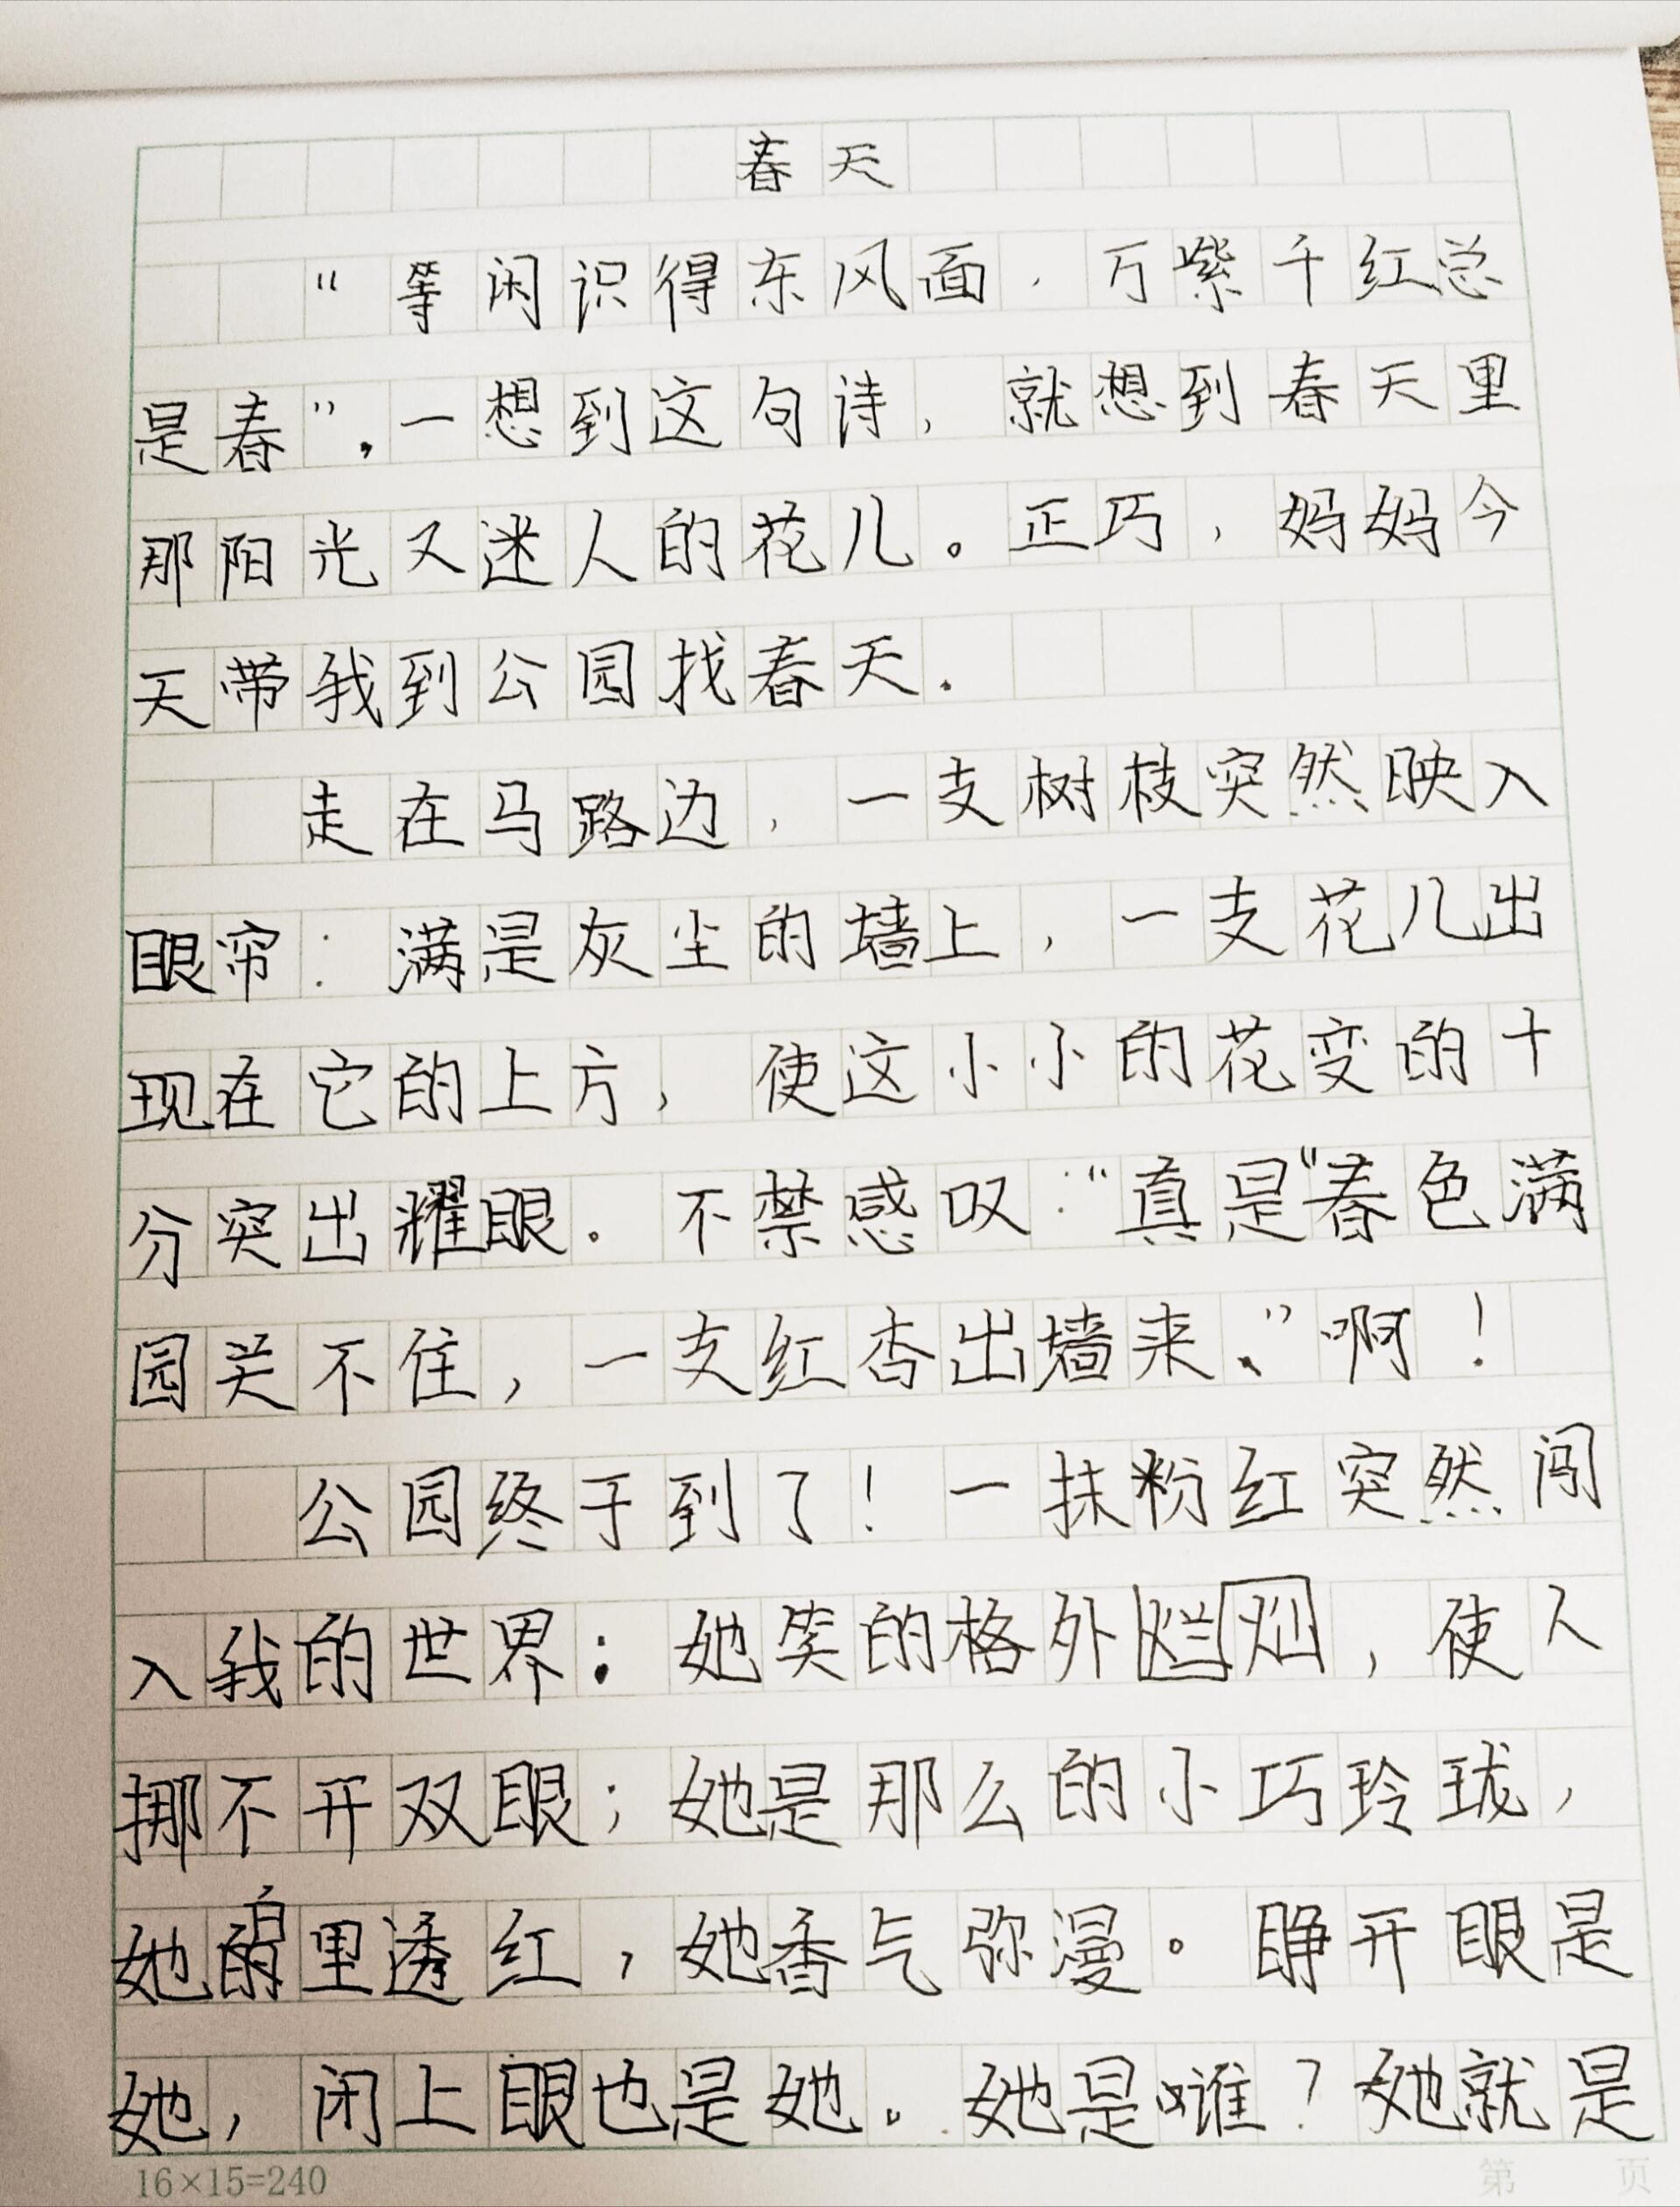 春天
“等闲识得东风面，万紫千红总
是春”，一想到这句诗，就想到春天里
那阳光又迷人的花儿。正巧，妈妈今
天带我到公园找春天.
走在马路边，一支树枝突然映入
眼帘：满是灰尘的墙上，一支花儿出
现在它的上方，使这小小的花变的十
分突出耀眼。不禁感叹：“真是“春色满
园关不住，一支红杏出墙来、”啊！
公园终于到了！一抹粉红突然闯
入我的世界：她笑的格外烂灿，使人
挪不开双眼；她是那么的小巧玲珑，
她白里透红，她香气弥漫。睁开眼是
她，闭上眼也是她。她是谁？她就是
16×15=240
第 页